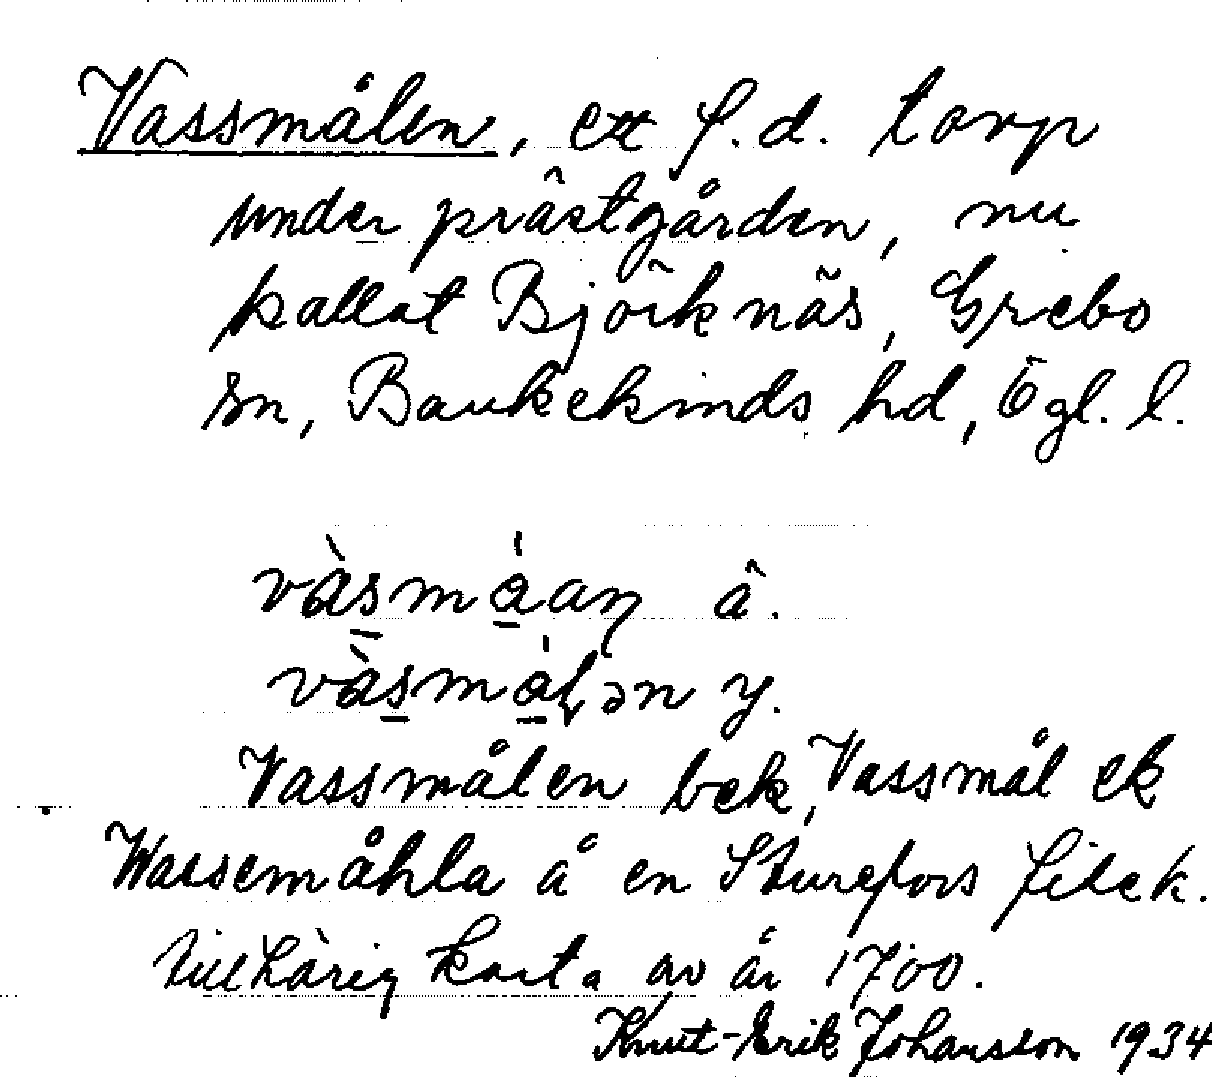 Vassmålen, ett f.d. torp
under prästgården, nu
kallat Björknäs, Grebo
sn, Bankekinds hd, Ögl. l.
vàsmåan ä.
vàsmåļən y.
Vassmålen bek, Vassmål ek
Wassemåhla å en Sturefors fidek.
tillhörig karta av år 1700.
Knut-Erik Johansson 1934